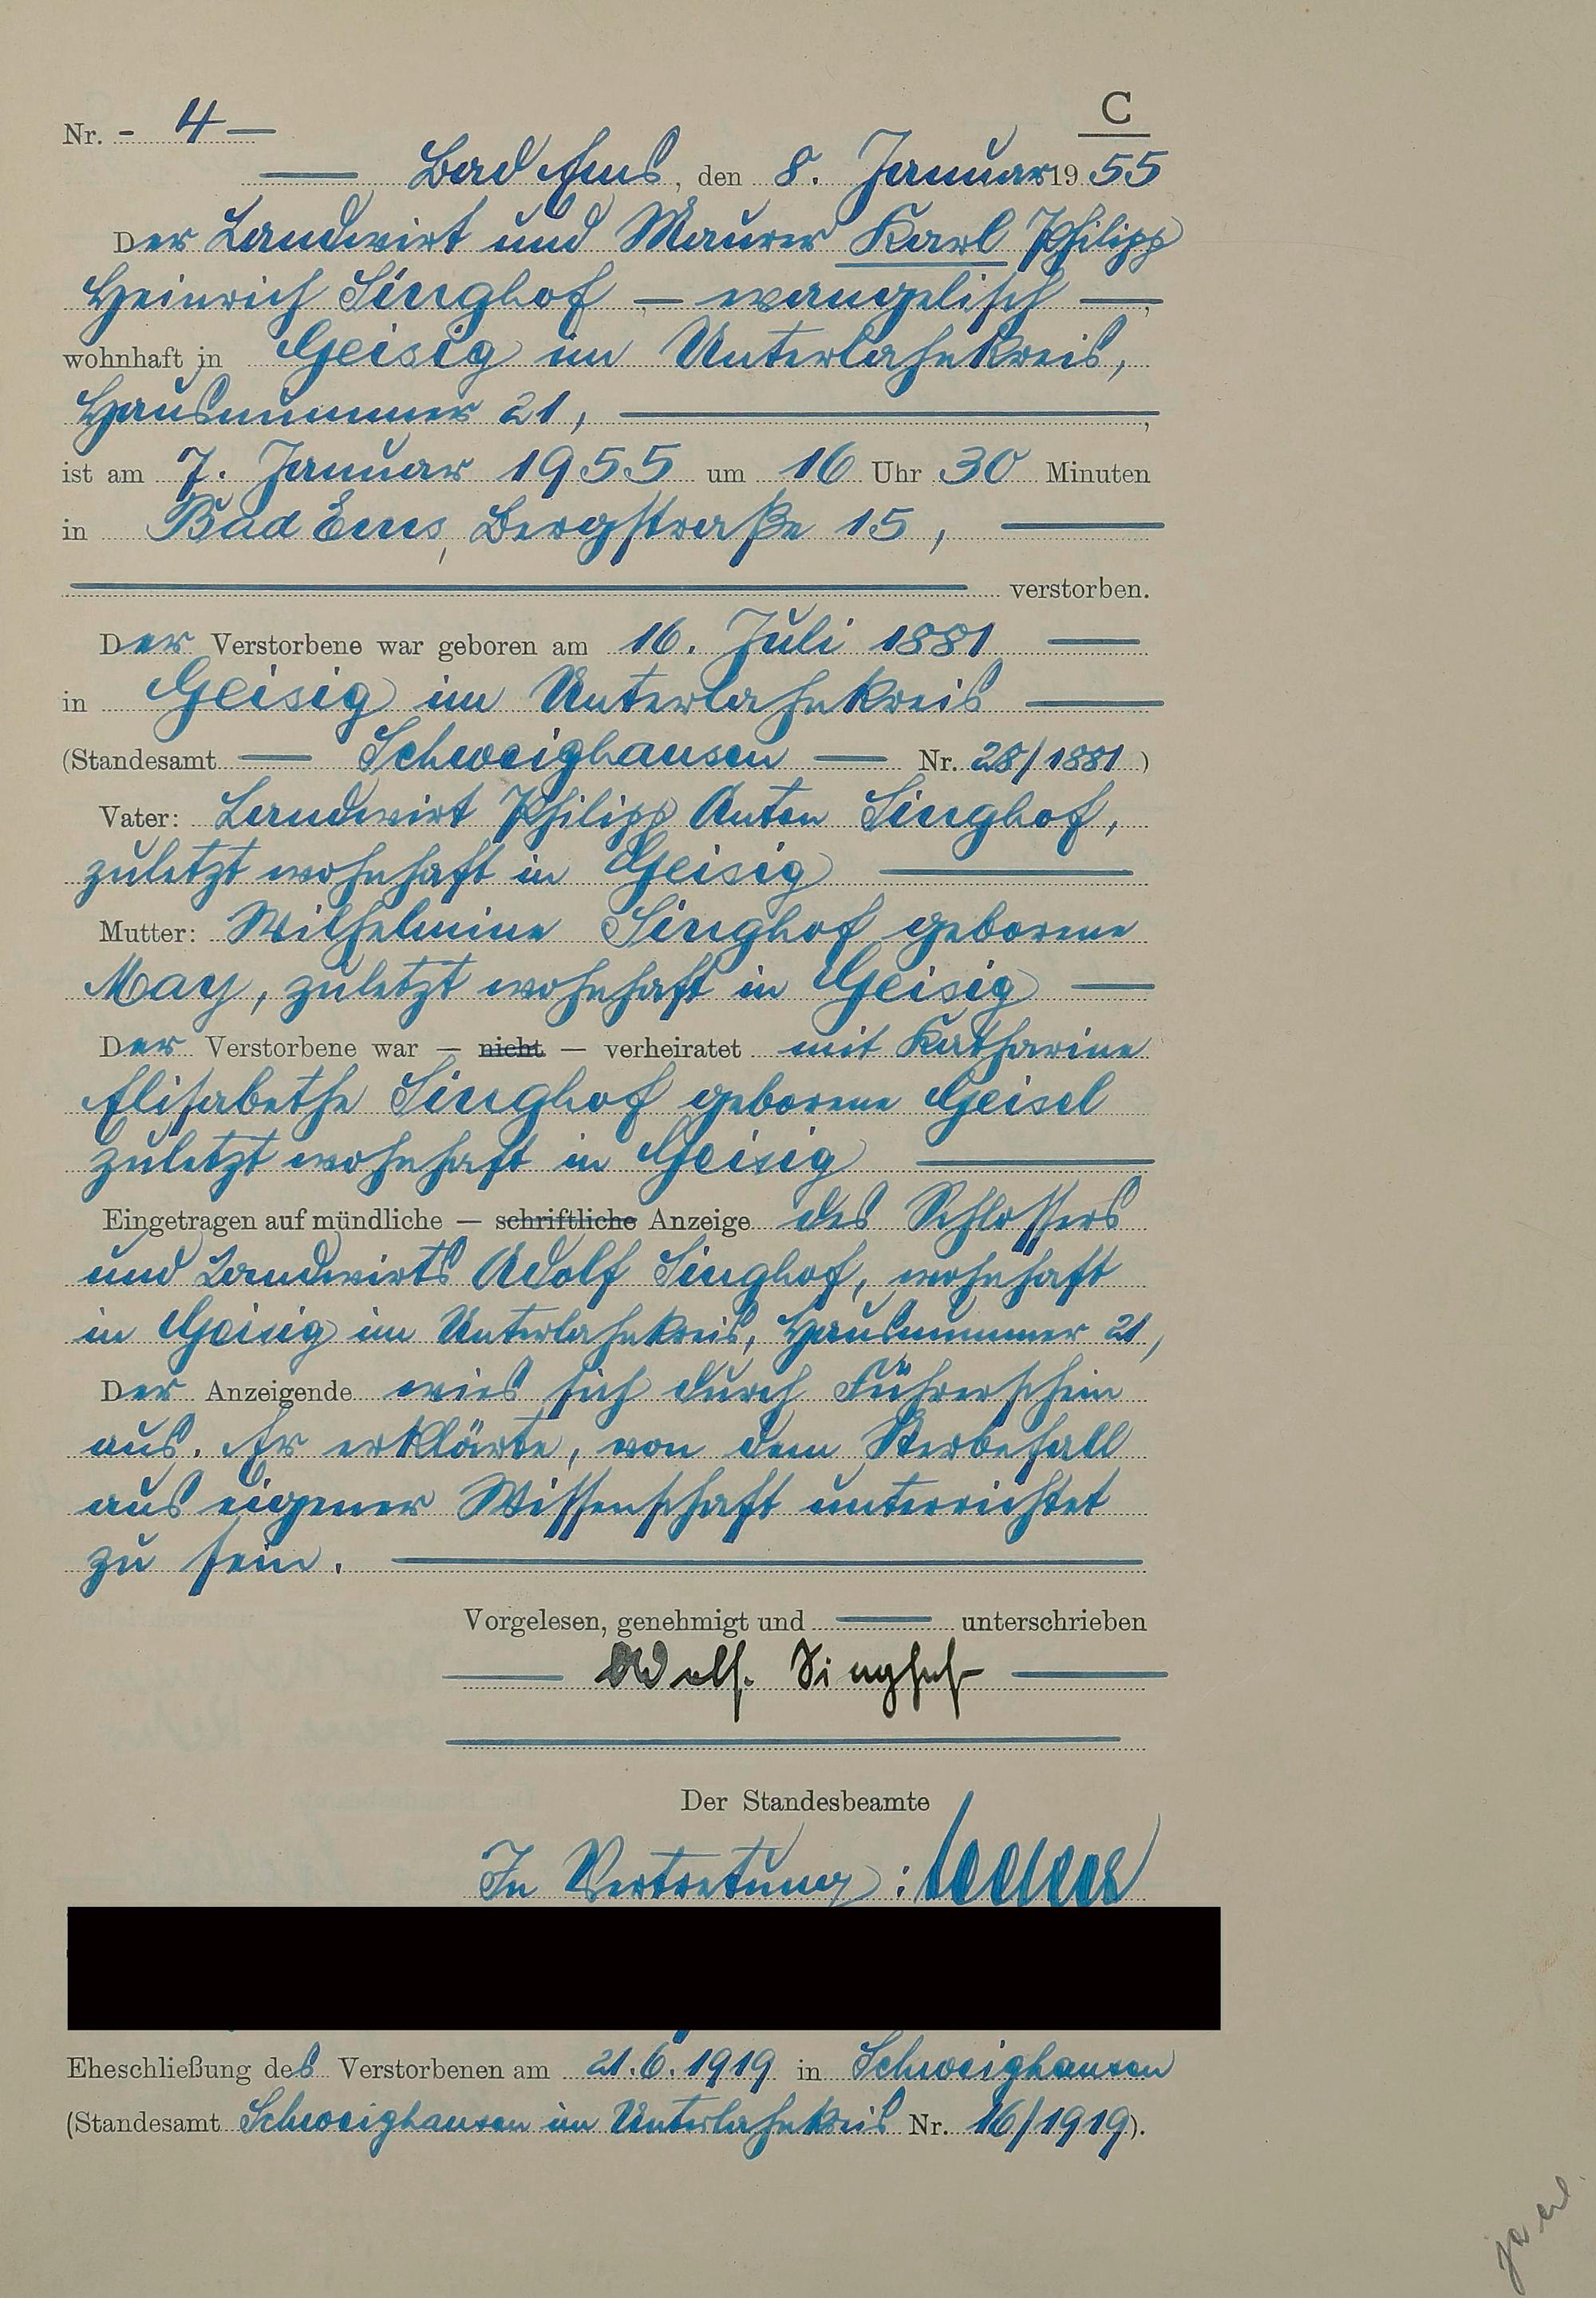 C
Nr. - 4 —
— Bad Ems, den 8. Januar 1955
Der Landwirt und Maurer Karl Philipp
Heinrich Singhof, — evangelisch —,
wohnhaft in Geisig im Unterlahnkreis,
Hausnummer 21, —,
ist am 7. Januar 1955 um 16 Uhr 30 Minuten
in Bad Ems, Bergstraße 15, —
— verstorben.
Der Verstorbene war geboren am 16. Juli 1881 —
in Geisig im Unterlahnkreis —
(Standesamt — Schweighausen — Nr. 28/1881)
Vater: Landwirt Philipp Anton Singhof,
zuletzt wohnhaft in Geisig —
Mutter: Wilhelmine Singhof geborene
May, zuletzt wohnhaft in Geisig —
Der Verstorbene war — nicht — verheiratet mit Katharine
Elisabethe Singhof geborene Geisel
zuletzt wohnhaft in Geisig —
Eingetragen auf mündliche — schriftliche Anzeige des Schlossers
und Landwirts Adolf Singhof, wohnhaft
in Geisig im Unterlahnkreis, Hausnummer 21,
Der Anzeigende wies sich durch Führerschein
aus. Er erklärte, von dem Sterbefall
aus eigener Wissenschaft unterrichtet
zu sein. —
Vorgelesen, genehmigt und — unterschrieben
— Adolf. Singhof —
Der Standesbeamte
In Vertretung:
Eheschließung des Verstorbenen am 21.6.1919 in Schweighausen
(Standesamt Schweighausen im Unterlahnkreis Nr. 16/1919).